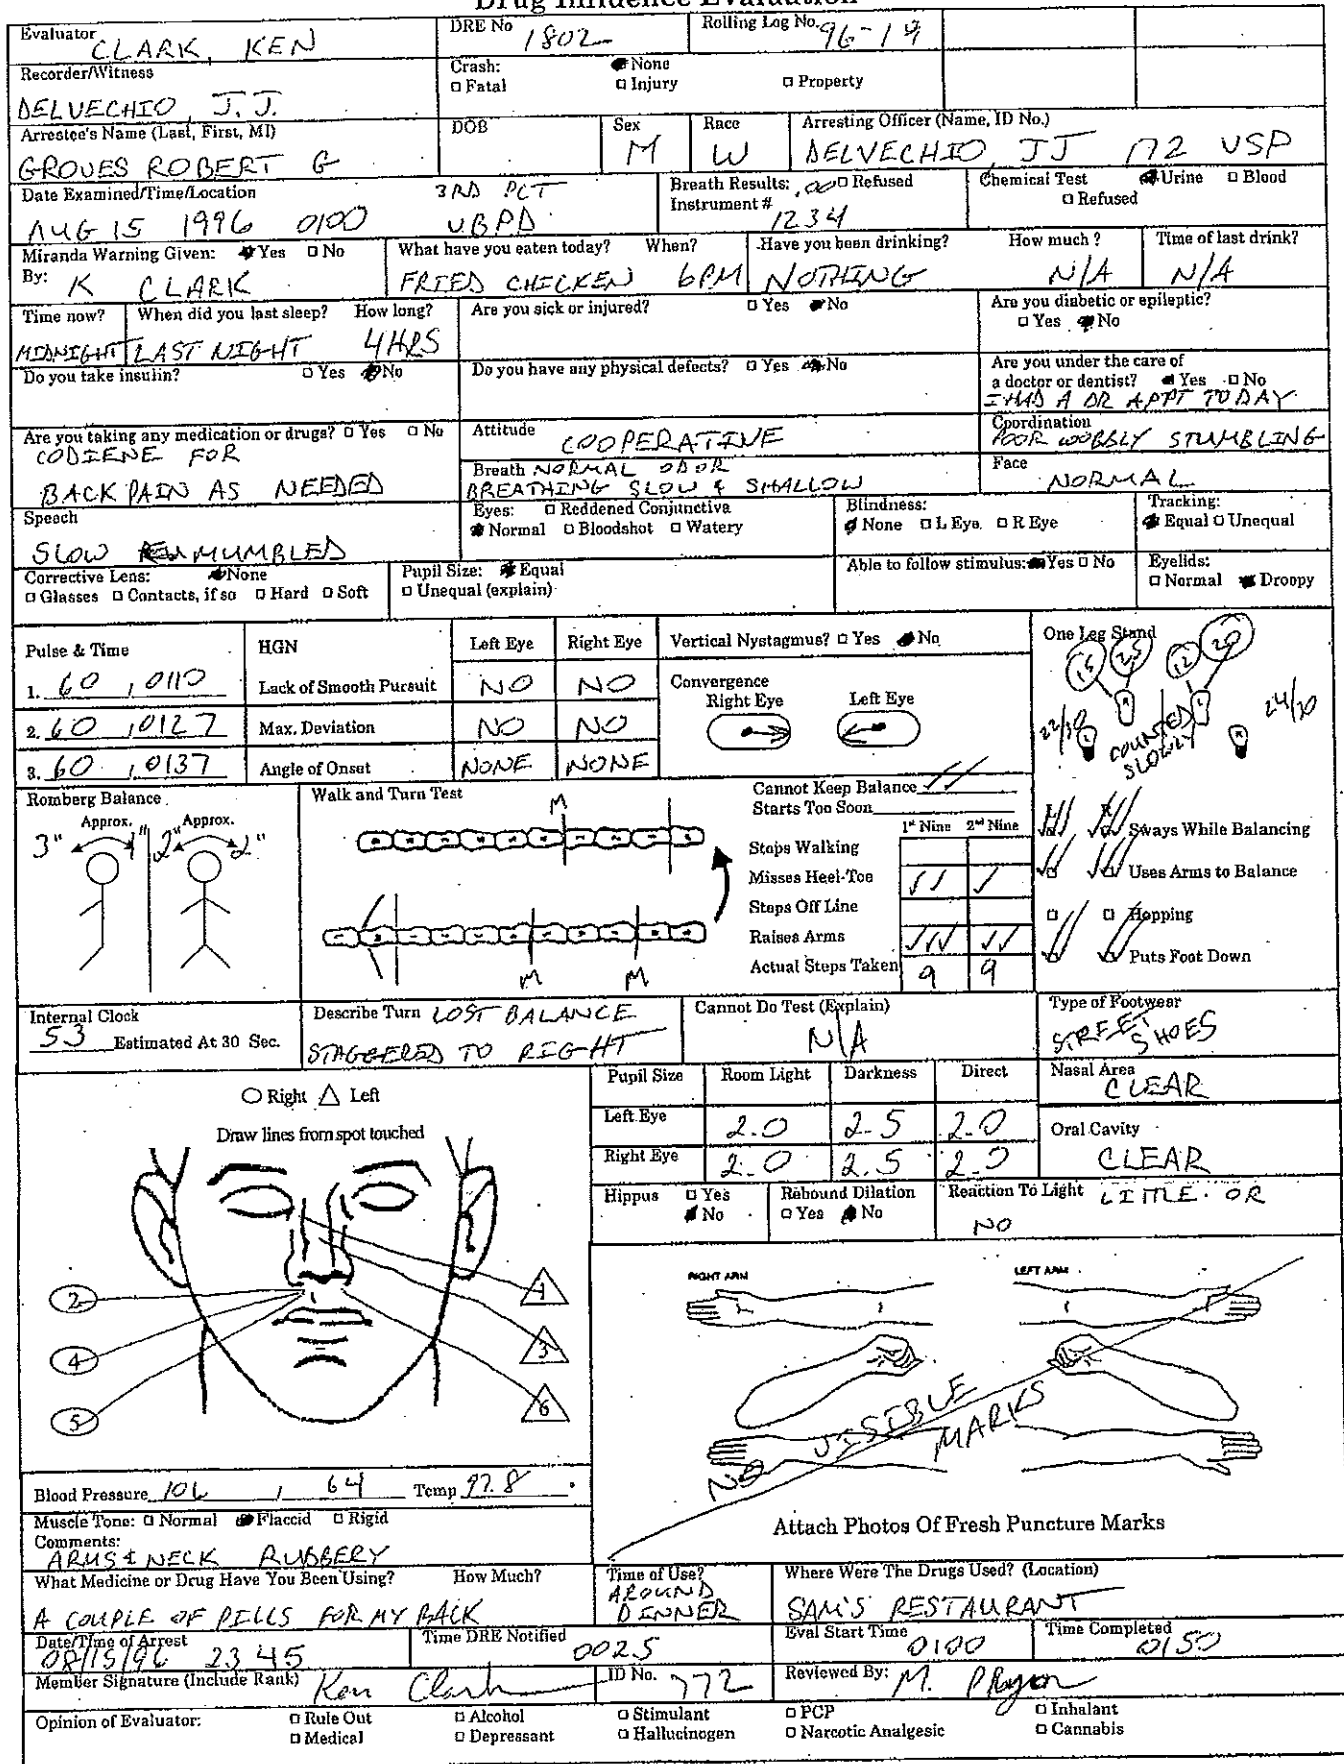 Drug Influence Evaluation
Evaluator CLARK, KEN DRE No 1802 Rolling Log No. 96-19
Recorder/Witness DELVECHIO, J.J. Crash: None Fatal Injury Property
Arrestee's Name (Last, First, MI) GROVES ROBERT G DOB Sex M Race W Arresting Officer (Name, ID No.) DELVECHIO, JJ 172 VSP
Date Examined/Time/Location AUG 15 1996 0100 3RD PCT VBPD Breath Results: .00 Refused Instrument # 1234 Chemical Test Urine Blood Refused
Miranda Warning Given: Yes No By: K CLARK What have you eaten today? When? FRIED CHICKEN 6PM Have you been drinking? NOTHING How much? N/A Time of last drink? N/A
Time now? MIDNIGHT When did you last sleep? How long? LAST NIGHT 4HRS Are you sick or injured? Yes No Are you diabetic or epileptic? Yes No
Do you take insulin? Yes No Do you have any physical defects? Yes No Are you under the care of a doctor or dentist? Yes No I HAD A DR APPT TODAY
Are you taking any medication or drugs? Yes No CODIENE FOR BACK PAIN AS NEEDED Attitude COOPERATIVE Coordination POOR WOBBLY STUMBLING
Breath NORMAL ODOR BREATHING SLOW & SHALLOW Face NORMAL
Speech SLOW MUMBLED Eyes: Reddened Conjunctiva Normal Bloodshot Watery Blindness: None L Eye. R Eye Tracking: Equal Unequal
Corrective Lens: None Glasses Contacts, if so Hard Soft Pupil Size: Equal Unequal (explain) Able to follow stimulus: Yes No Eyelids: Normal Droopy
Pulse & Time HGN Left Eye Right Eye Vertical Nystagmus? Yes No One Leg Stand
1. 60 , 0110 Lack of Smooth Pursuit NO NO Convergence Right Eye Left Eye
2. 60 , 0127 Max. Deviation NO NO
3. 60 , 0137 Angle of Onset NONE NONE
15 25 12 20
22/30 COUNTED SLOWLY 24/30
L R
Romberg Balance Approx. Approx. 3" 1" 2" 2"
Walk and Turn Test M M M
Cannot Keep Balance
Starts Too Soon
1st Nine 2nd Nine
Stops Walking
Misses Heel-Toe
Steps Off Line
Raises Arms
Actual Steps Taken 9 9
Sways While Balancing
Uses Arms to Balance
Hopping
Puts Foot Down
Internal Clock 53 Estimated At 30 Sec. Describe Turn LOST BALANCE STAGGERED TO RIGHT Cannot Do Test (Explain) N/A Type of Footwear STREET SHOES
Right Left
Draw lines from spot touched
2 4 5 1 3 6
Pupil Size Room Light Darkness Direct Nasal Area CLEAR
Left Eye 2.0 2.5 2.0 Oral Cavity CLEAR
Right Eye 2.0 2.5 2.0
Hippus Yes No Rebound Dilation Yes No Reaction To Light LITTLE OR NO
RIGHT ARM LEFT ARM
NO VISIBLE MARKS
Attach Photos Of Fresh Puncture Marks
Blood Pressure 106 / 64 Temp 97.8
Muscle Tone: Normal Flaccid Rigid
Comments: ARMS & NECK RUBBERY
What Medicine or Drug Have You Been Using? How Much? A COUPLE OF PILLS FOR MY BACK Time of Use? AROUND DINNER Where Were The Drugs Used? (Location) SAM'S RESTAURANT
Date/Time of Arrest 08/15/96 2345 Time DRE Notified 0025 Eval Start Time 0100 Time Completed 0150
Member Signature (Include Rank) Ken Clark ID No. 772 Reviewed By: M.
Opinion of Evaluator: Rule Out Alcohol Stimulant PCP Inhalant
Medical Depressant Hallucinogen Narcotic Analgesic Cannabis